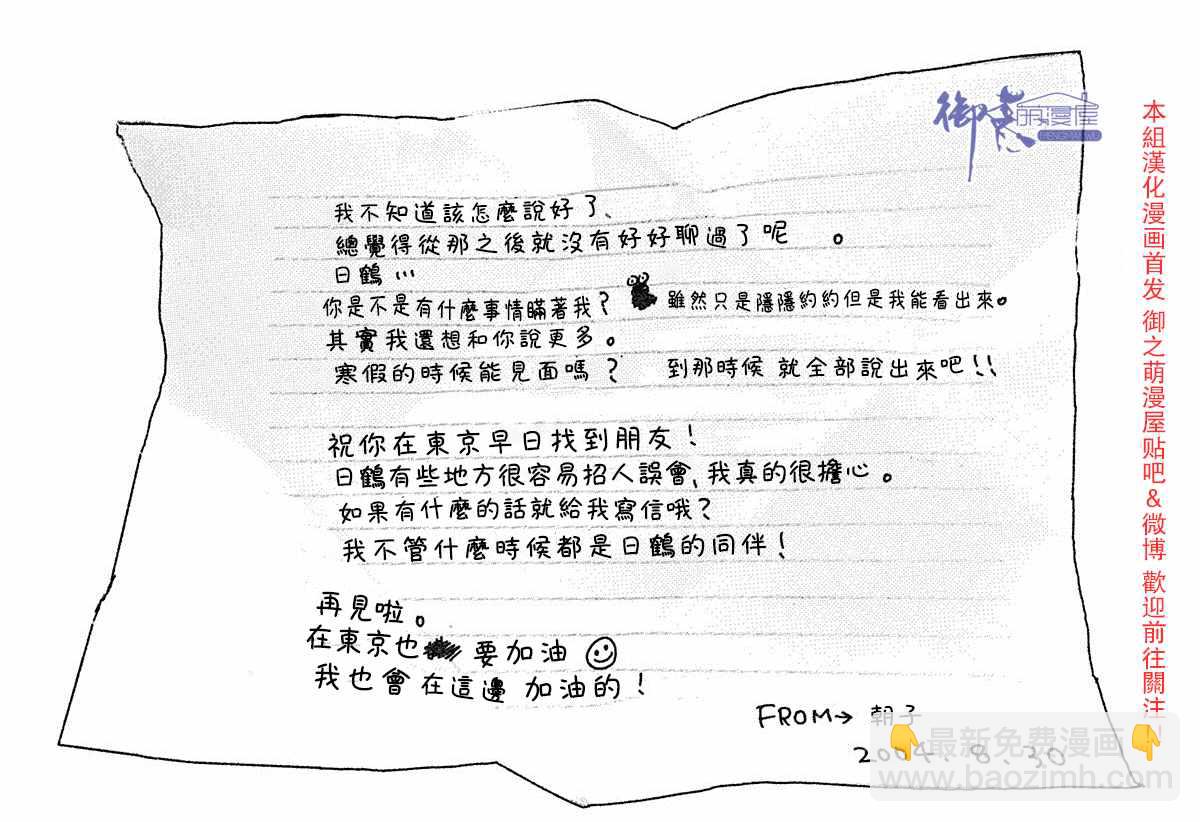 我不知道該怎麼說好了、
總覺得從那之後就沒有好好聊過了呢 。
日鶴…
你是不是有什麼事情瞞著我? 雖然只是隱隱約約但是我能看出來。
其實我還想和你說更多。
寒假的時候能見面嗎? 到那時候 就全部說出來吧!!
祝你在東京早日找到朋友!
日鶴有些地方很容易招人誤會、我真的很擔心。
如果有什麼的話就給我寫信哦?
我不管什麼時候都是日鶴的同伴!
再見啦。
在東京也 要加油
我也會在這邊 加油的!
FROM→ 朝子
2004.8.30
御
萌漫屋
本組漢化漫画首发 御之萌漫屋贴吧&微博 歡迎前往關注!
👇最新免费漫画👇
www.baozimh.com